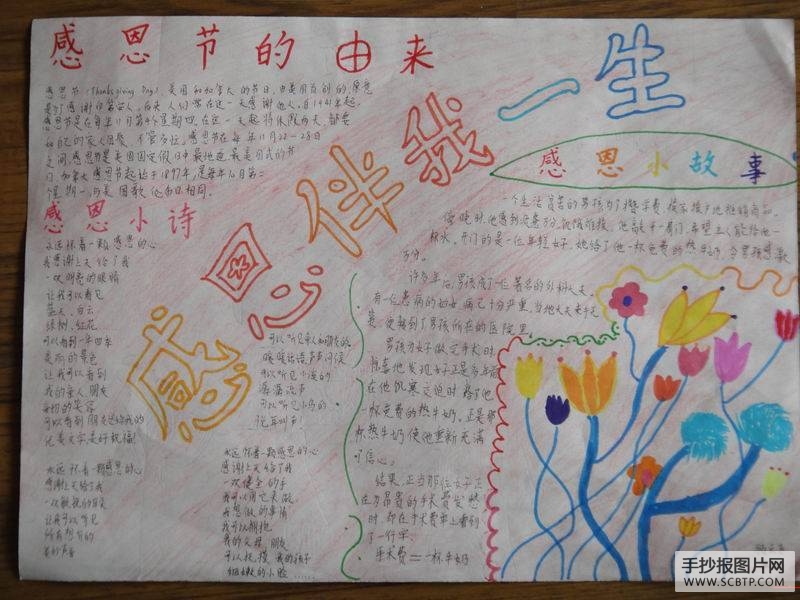 感恩节的由来
感恩伴我一生
感恩节 (Thanksgiving Day) 美国和加拿大的节日,由美国首创的,原意
是为了感谢印第安人,后来人们常在这一天感谢他人,自1941年起,
感恩节是在每年11月第4个星期四,在这一天起将休假两天,
和自己的家人团聚,感恩节在每年11月22-28日
之间,感恩节是美国国定假日中最地道、最美国式的节
日,加拿大感恩节起始于1879年,是每年10月第二
个星期一,与美国
感恩小诗
永远怀着一颗感恩的心
我感谢上天给了我
一双明亮的眼睛
让我可以看见
蓝天,白云
绿树,红花
可以看到一年四季
美丽的景色
让我可以看到
我的亲人,朋友
可以看到朋友送给我的
优美文字,美好祝福!
永远怀着一颗感恩的心
感谢上天给了我
让我可以听见
所有想听的
可以听见亲人和朋友的
可以听见小溪的
潺潺流声
可以听见小鸟的
永远怀着一颗感恩的心
感谢上天给了我
一双健全的手
我可以用它来做
我想做的事情
我可以拥抱
我的父母,朋友
可以抚摸我的孩子
细嫩的小脸……
感恩小故事
一个生活贫苦的男孩为了攒学费,挨家挨户地推销商品。
傍晚时,他感到疲惫万分,饥饿难挨,他敲开一扇门,希望主人能给他一
杯水。开门的是一位年轻女子,她给了他一杯免费的热牛奶,令男孩感激
万分。
许多年后,男孩成了一位著名的外科大夫。
有一位患病的妇女,病情十分严重,当地大夫束手无
策,便转到了男孩所在的医院里。
男孩为妇女做完手术时,
惊喜地发现妇女正是多年前
在他饥寒交迫时给了他
一杯免费的热牛奶,正是那
杯热牛奶使他重新充满
了信心。
结果,正当那位女子正
在为昂贵的手术费发愁
时,却在手术费单上看到
了一行字:
手术费=一杯牛奶
手抄报图片网
WWW.SCBTP.COM